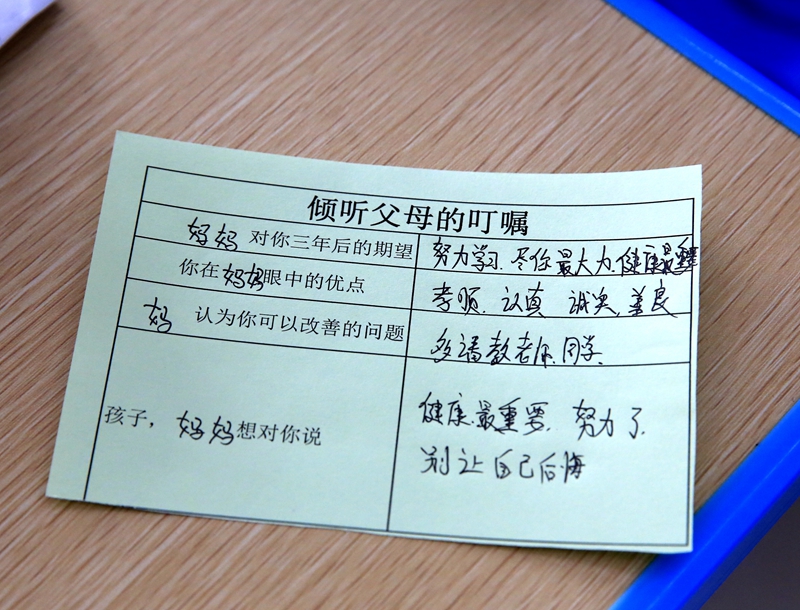 倾听父母的叮嘱
妈妈 对你三年后的期望
努力学习. 尽你最大力. 健康最重要
你在妈妈眼中的优点
孝顺. 认真 诚实. 善良
妈 认为你可以改善的问题
多请教老师. 同学.
孩子，妈妈想对你说
健康.最重要. 努力了.
别让自己后悔